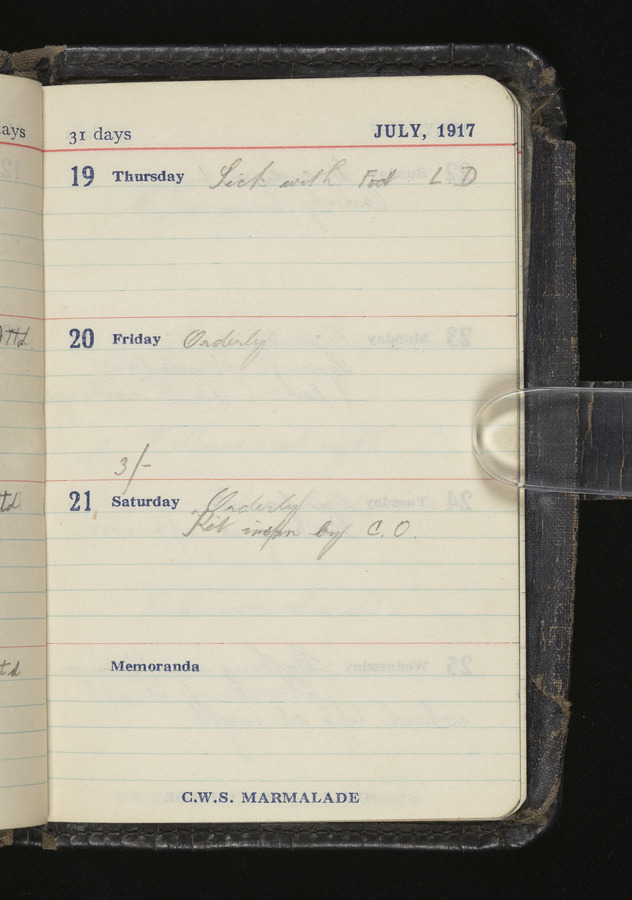 31 days JULY, 1917
19 Thursday Sick with Foot L. D
20 Friday Orderly
3/-
21 Saturday Orderly
Kit inspn by C. O.
Memoranda
C.W.S. MARMALADE